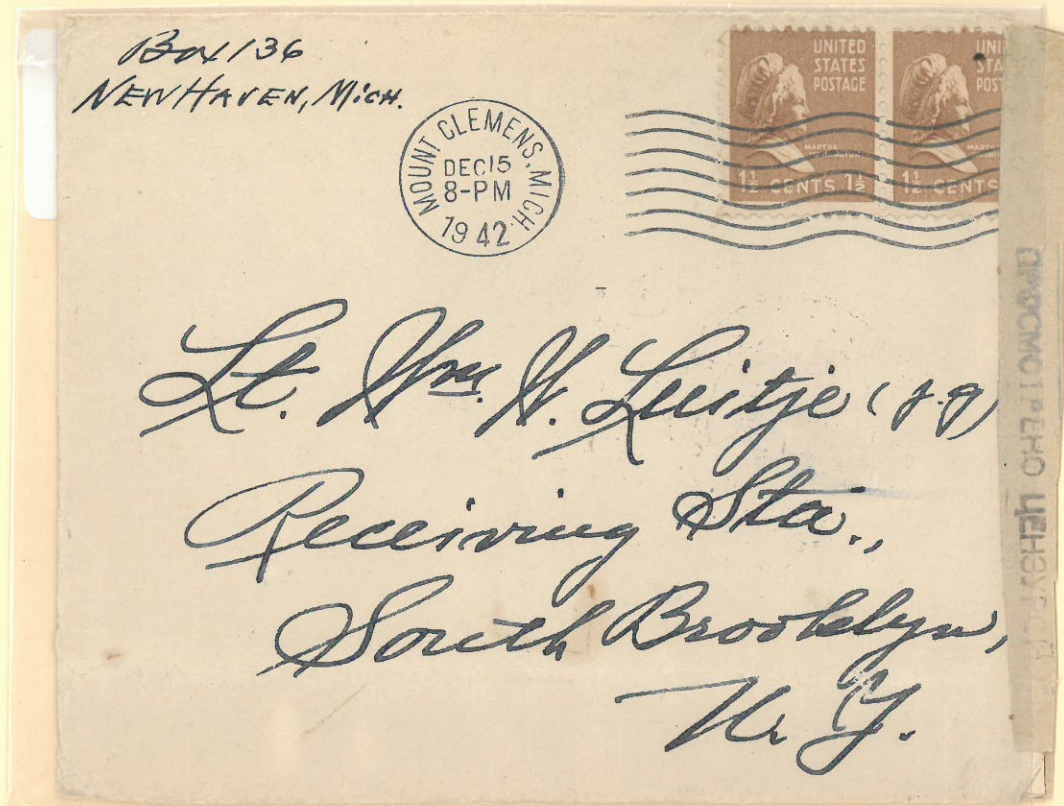 Box 136
NEW HAVEN, MICH.
MOUNT CLEMENS, MICH.
DEC 15
8-PM
1942
UNITED
STATES
POSTAGE
MARTHA
WASHINGTON
1½ CENTS 1½
UNI
STA
POS
MARTHA
1½ CENTS
Lt. Wm. W. Luitje (j.g)
Receiving Sta.,
South Brooklyn,
N. Y.
ПРОСМОТРЕНО